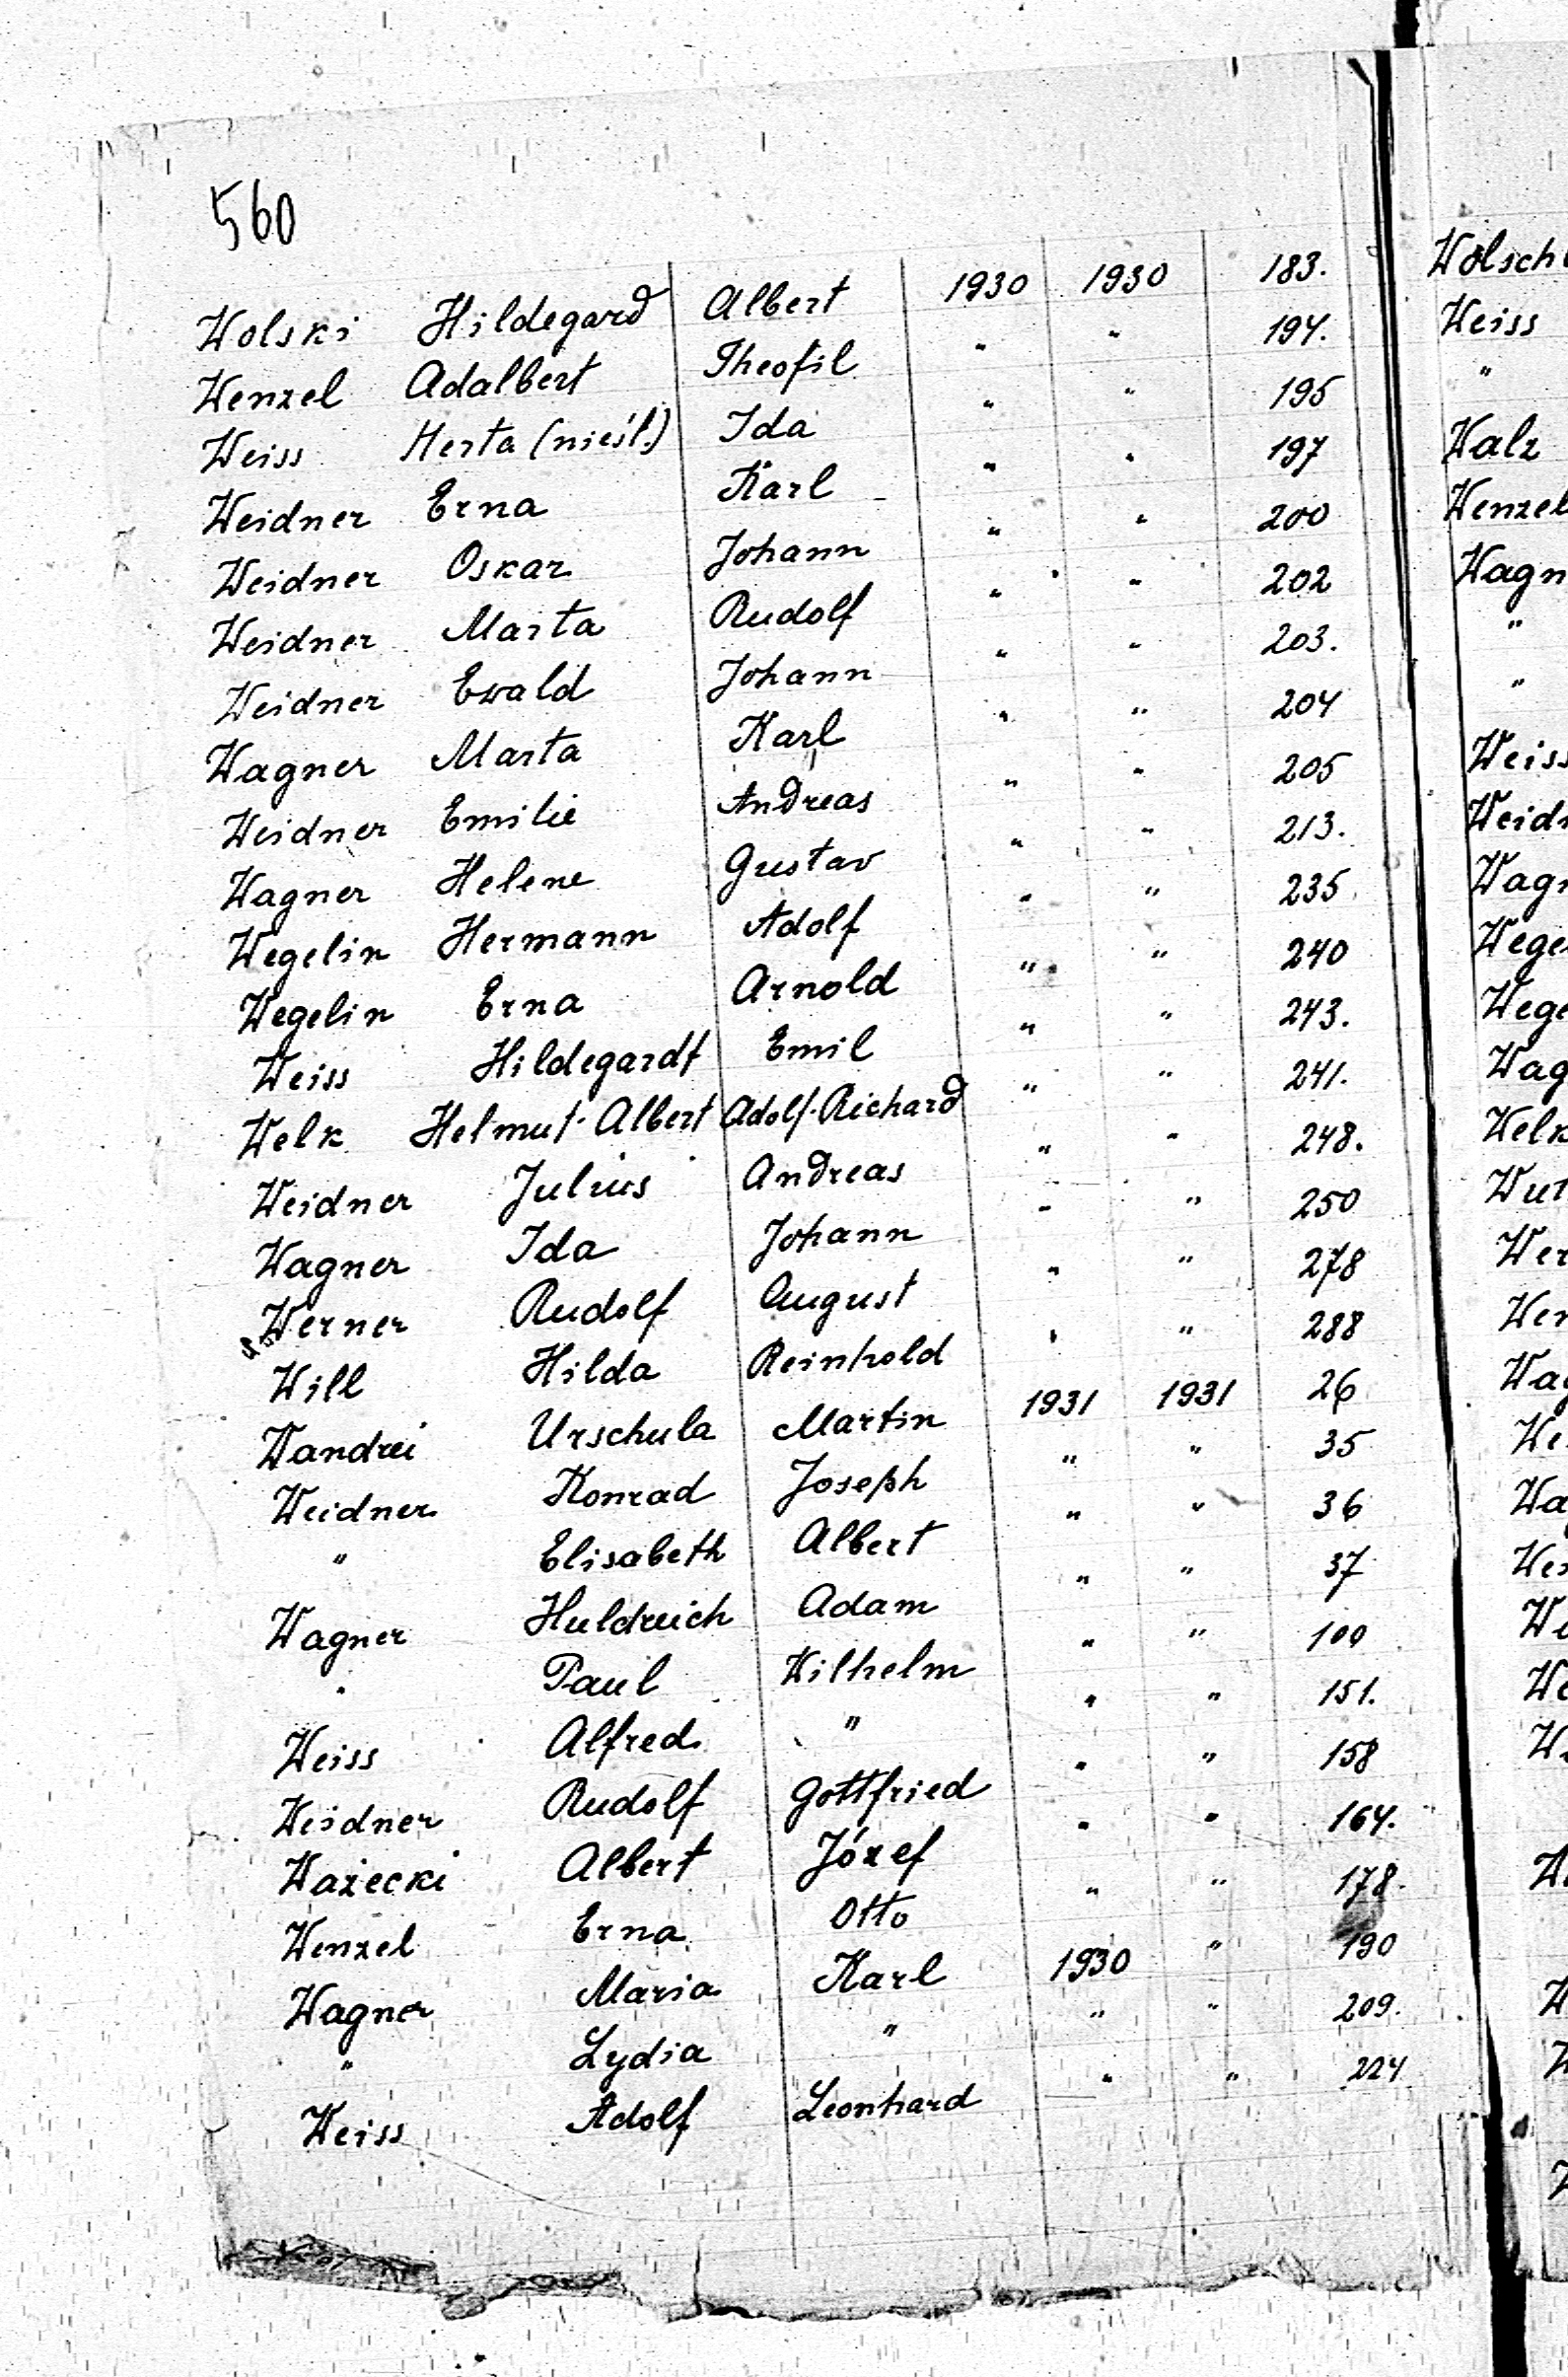 560
Wolski Hildegard Albert 1930 1930 183.
Wenzel Adalbert Theofil " " 194.
Weiss Herta (nieśl.) Ida " " 195
Weidner Erna Karl " " 197
Weidner Oskar Johann " " 200
Weidner Marta Rudolf " " 202
Weidner Ewald Johann " " 203.
Wagner Marta Karl " " 204
Weidner Emilie Andreas " " 205
Wagner Helene Gustav " " 213.
Wegelin Hermann Adolf " " 235
Wegelin Erna Arnold " " 240
Weiss Hildegardt Emil " " 243.
Welk Helmut-Albert Adolf-Richard " " 241.
Weidner Julius Andreas " " 248.
Wagner Ida Johann " " 250
Werner Rudolf August " " 278
Will Hilda Reinhold " " 288
Wandrei Urschula Martin 1931 1931 26
Weidner Konrad Joseph " " 35
" Elisabeth Albert " " 36
Wagner Huldreich Adam " " 37
" Paul Wilhelm " " 100
Weiss Alfred " " " 151.
Weidner Rudolf Gottfried " " 158
Ważecki Albert Józef " " 164.
Wenzel Erna Otto " " 178.
Wagner Maria Karl 1930 " 190
" Lydia " " " 209.
Weiss Adolf Leonhard " " 224
Wolsch
Weiss
"
Walz
Wenzel
Wagn
"
"
Weiss
Weid
Wag
Wege
Wege
Wag
Welk